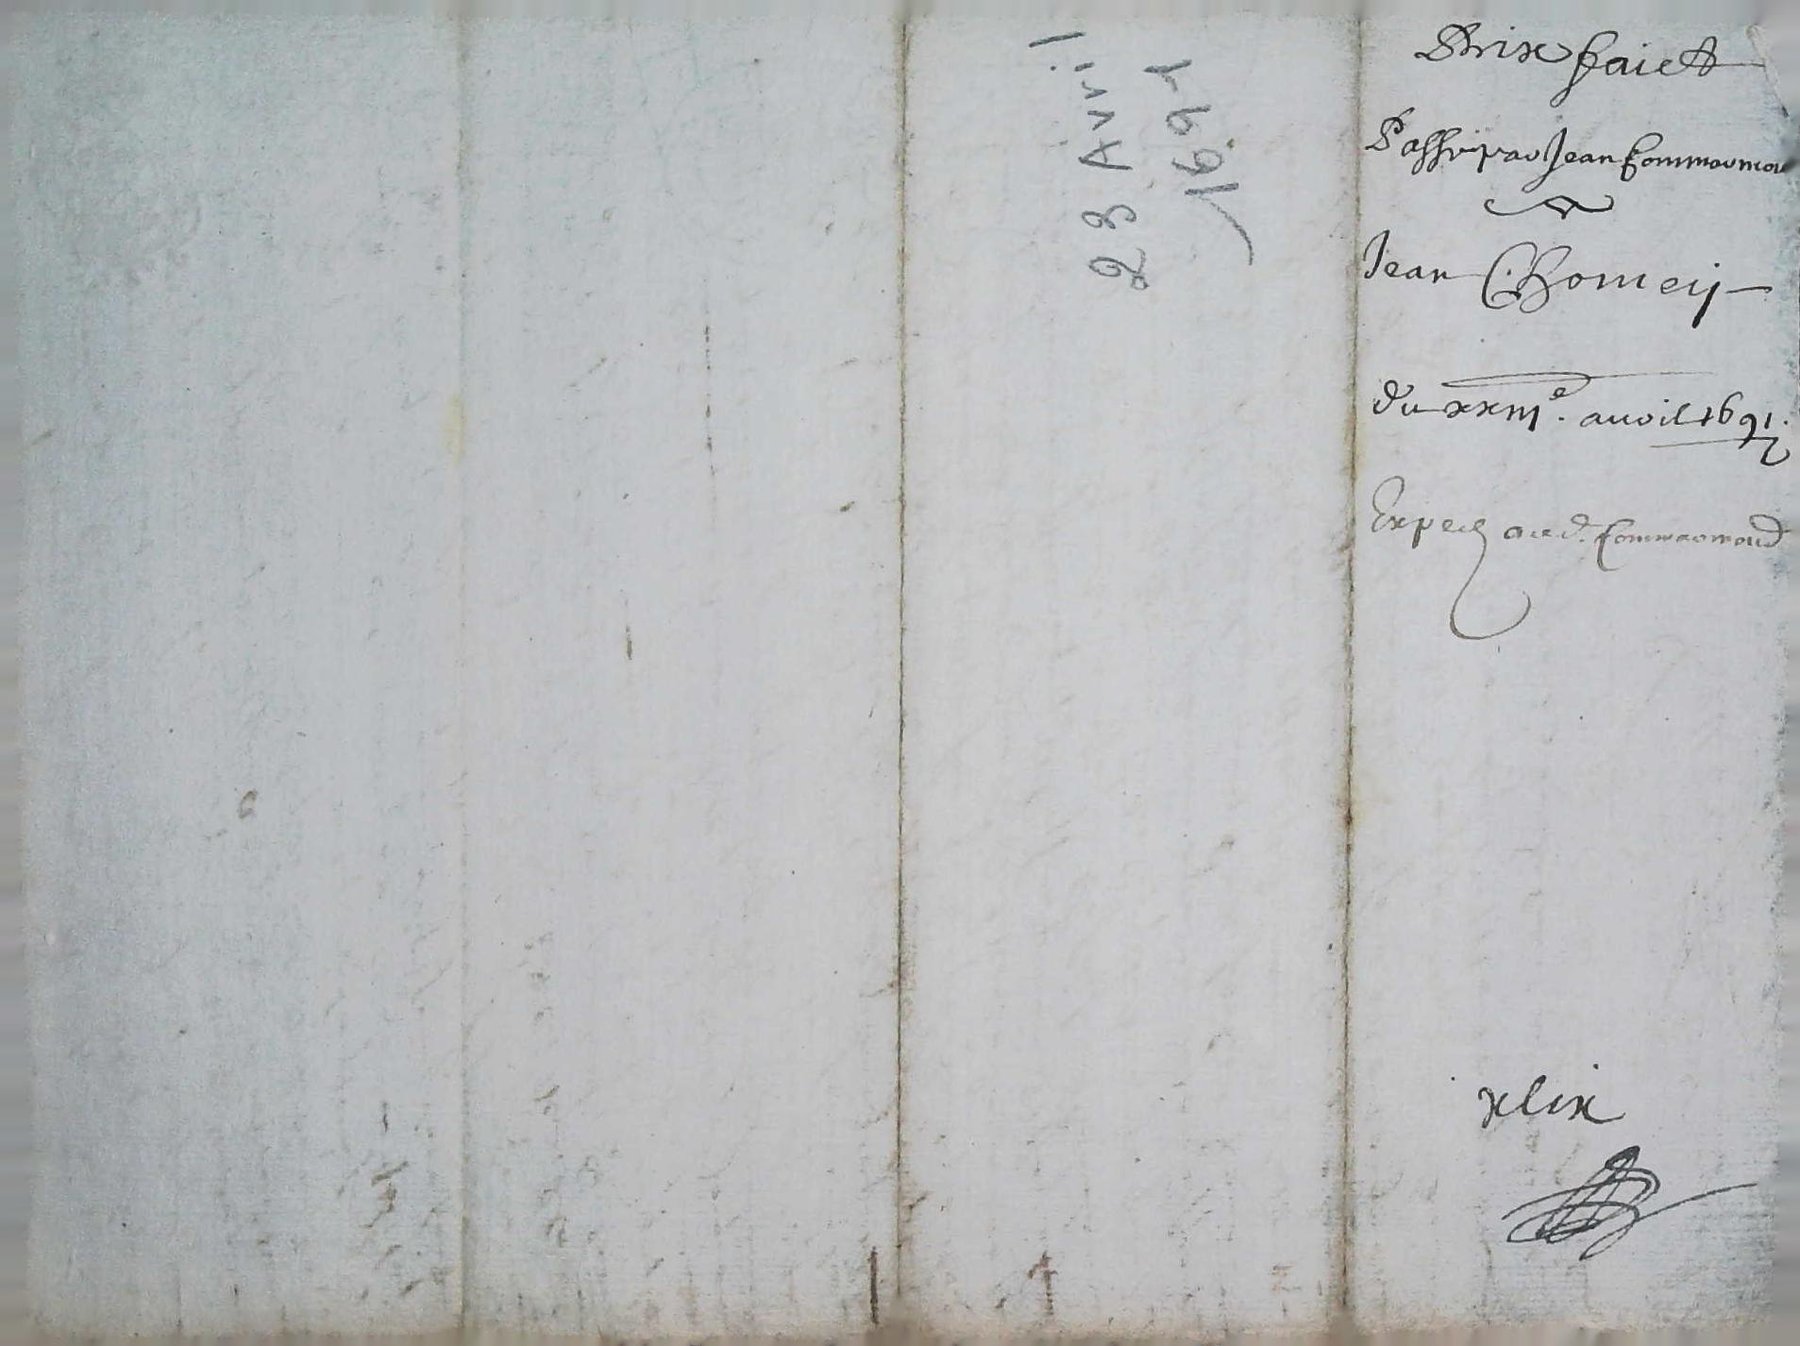 23 Avril
1691
Prix faict
Passé par Jean Commarmo
Jean Chomeij
du xxiii^e. avril 1691.
Exped aud. Commarmond
xlix